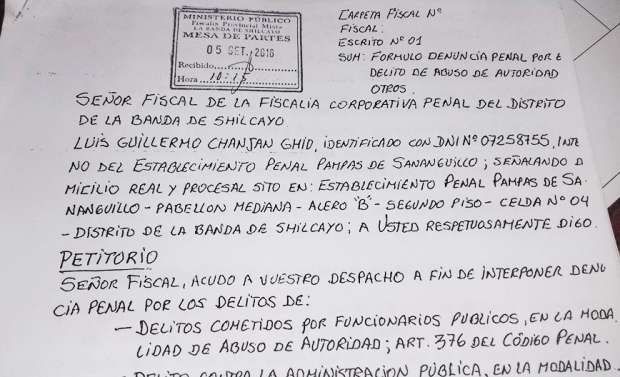 MINISTERIO PÚBLICO
Fiscalia Provincial Mixta
LA BANDA DE SHILCAYO
MESA DE PARTES
05 SET. 2016
Recibido
Hora 10:15
CARPETA FISCAL Nº
FISCAL:
ESCRITO Nº 01
SUM: FORMULO DENUNCIA PENAL POR E
DELITO DE ABUSO DE AUTORIDAD
OTROS.
SEÑOR FISCAL DE LA FISCALIA CORPORATIVA PENAL DEL DISTRITO
DE LA BANDA DE SHILCAYO
LUIS GUILLERMO CHANJAN GHIO, IDENTIFICADO CON DNI Nº 07258755, INTE
NO DEL ESTABLECIMIENTO PENAL PAMPAS DE SANANGUILLO; SEÑALANDO D
MICILIO REAL Y PROCESAL SITO EN: ESTABLECIMIENTO PENAL PAMPAS DE SA-
NANGUILLO - PABELLON MEDIANA - ALERO "B" - SEGUNDO PISO - CELDA Nº 04
- DISTRITO DE LA BANDA DE SHILCAYO; A USTED RESPETUOSAMENTE DIGO.
PETITORIO
SEÑOR FISCAL, ACUDO A VUESTRO DESPACHO A FIN DE INTERPONER DENU
CIA PENAL POR LOS DELITOS DE:
- DELITOS COMETIDOS POR FUNCIONARIOS PUBLICOS, EN LA MODA
LIDAD DE ABUSO DE AUTORIDAD; ART. 376 DEL CÓDIGO PENAL.
- DELITO CONTRA LA ADMINISTRACION PÚBLICA, EN LA MODALIDAD